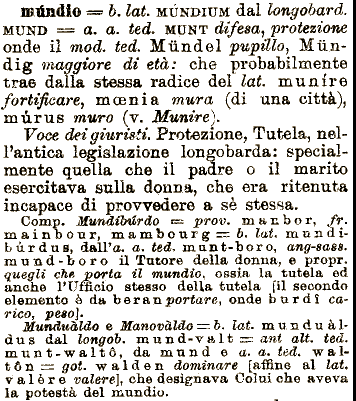 múndio = b. lat. MÚNDIUM dal longobard.
MUND = a. a. ted. MUNT difesa, protezione
onde il mod. ted. Mündel pupillo, Mün-
dig maggiore di età: che probabilmente
trae dalla stessa radice del lat. muníre
fortificare, mœnia mura (di una città),
múrus muro (v. Munire).
Voce dei giuristi. Protezione, Tutela, nel-
l'antica legislazione longobarda: special-
mente quella che il padre o il marito
esercitava sulla donna, che era ritenuta
incapace di provvedere a sè stessa.
Comp. Mundibúrdo = prov. manbor, fr.
mainbour, mambourg = b. lat. mundi-
búrdus, dall'a. a. ted. munt-boro, ang-sass.
mund-boro il Tutore della donna, e propr.
quegli che porta il mundio, ossia la tutela ed
anche l'Ufficio stesso della tutela [il secondo
elemento è da beran portare, onde burdî ca-
rico, peso].
Munduàldo e Manovàldo = b. lat. munduàl-
dus dal longob. mund-valt = ant alt. ted.
munt-waltô, da mund e a. a. ted. wal-
tôn = got. walden dominare [affine al lat.
valére valere], che designava Colui che aveva
la potestà del mundio.